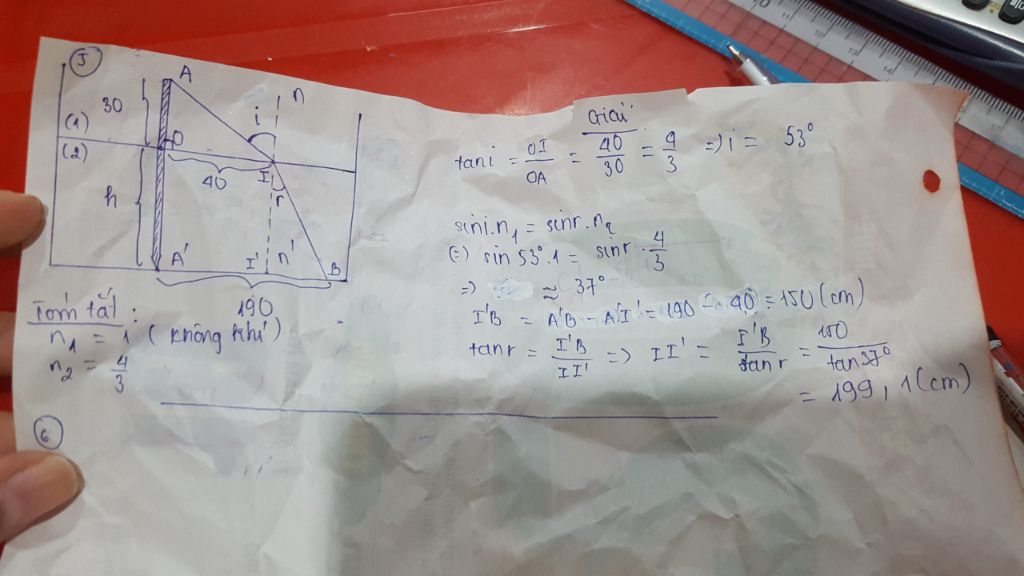 5
A
n
30
i
(1)
O
(2)
40
I
r
h
A'
I'
n'
B
190
Tóm tắt:
n₁ = 1 (không khí)
n₂ = 4/3
6
Giải
tan i = OI/OA = 40/30 = 4/3 => i = 53°
sin i . n₁ = sin r . n₂
(=) sin 53° . 1 = sin r . 4/3
=> ≈ 37°
I'B = A'B - A'I' = 190 - 40 = 150 (cm)
tan r = I'B/II' => II' = I'B/tan r = 150/tan 37°
= 199,1 (cm)